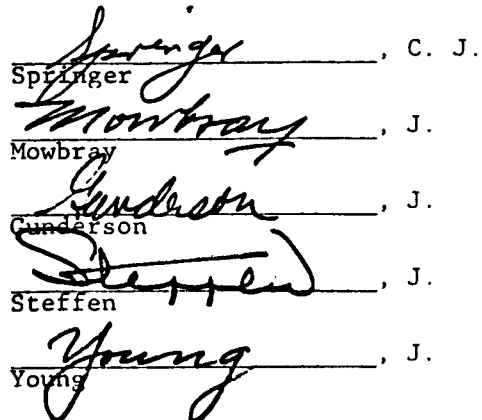 Springer, C. J.
Springer
Mowbray, J.
Mowbray
Gunderson, J.
Gunderson
Steffen, J.
Steffen
Young, J.
Young